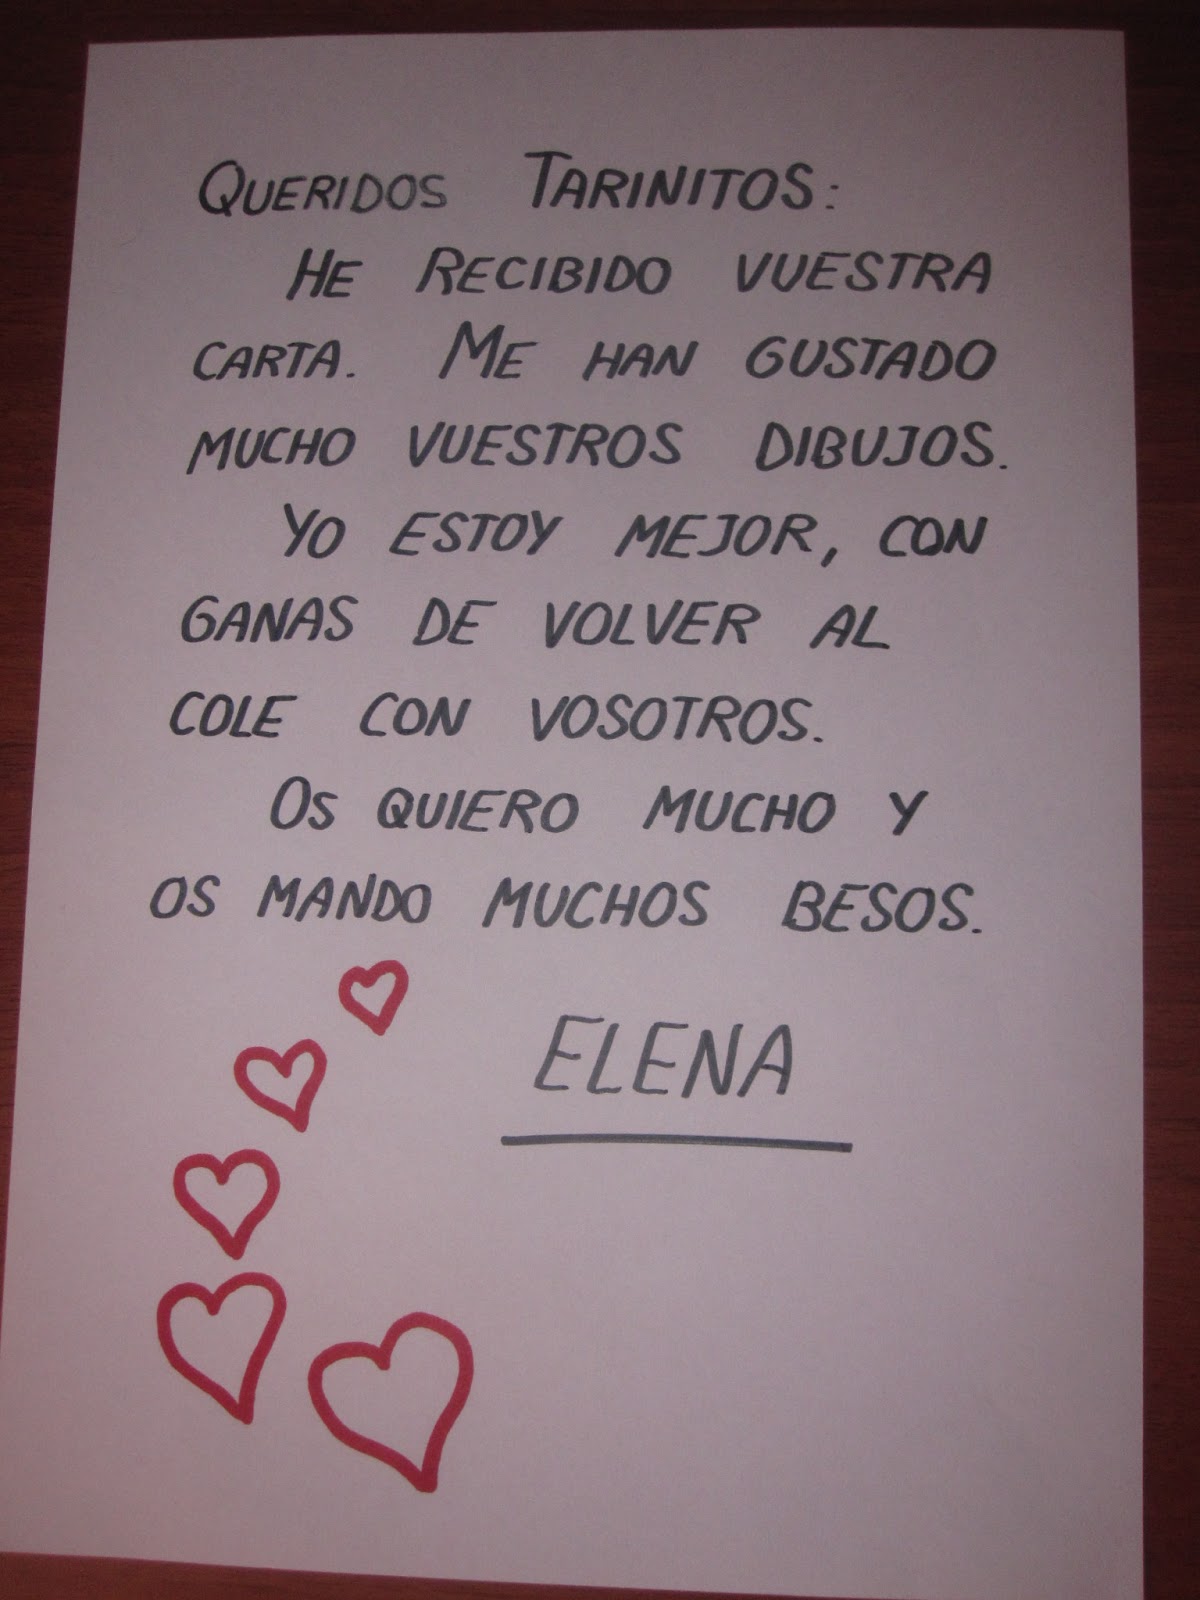 QUERIDOS TARINITOS:
HE RECIBIDO VUESTRA
CARTA. ME HAN GUSTADO
MUCHO VUESTROS DIBUJOS.
YO ESTOY MEJOR, CON
GANAS DE VOLVER AL
COLE CON VOSOTROS.
OS QUIERO MUCHO Y
OS MANDO MUCHOS BESOS.
ELENA